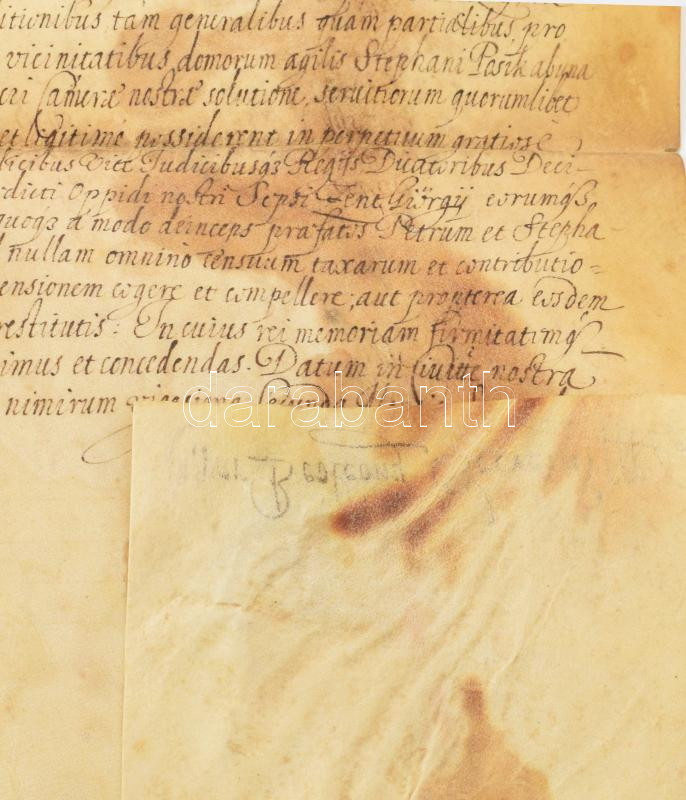 itionibus tam generalibus quam partialibus, pro
vicinitatibus, domorum agilis Stephani Pasik abuna
cri Camerae nostrae solutione, servitiorum quorumlibet
et legitime possiderent in perpetuum gratiose
dicibus Vice Judicibusqz Regijs Ducatoribus Deci-
dicti Oppidi nostri Sepsi Zent Giörgÿ eorumqz
quoqz a modo deinceps praefatos Petrum et Stepha-
nullam omnino censuum taxarum et contributio=
ensionem cogere et compellere, aut propterea eosdem
restitutis: In cuius rei memoriam firmitatemqz
imus et concedendas. Datum in Civitte nostra
nimirum vicesima secunda
darabanth